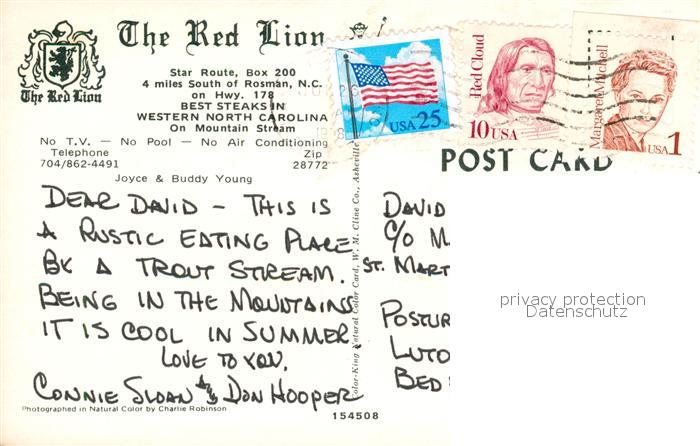 The Red Lion
The Red Lion
Star Route, Box 200
4 miles South of Rosman, N.C.
on Hwy. 178
BEST STEAKS IN
WESTERN NORTH CAROLINA
On Mountain Stream
No T.V. — No Pool — No Air Conditioning
Telephone Zip
704/862-4491 28772
Joyce & Buddy Young
USA 25
Red Cloud
10 USA
Margaret Mitchell
USA 1
POST CARD
DEAR DAVID – THIS IS
A RUSTIC EATING PLACE
BY A TROUT STREAM.
BEING IN THE MOUNTAINS
IT IS COOL IN SUMMER
LOVE TO YOU,
CONNIE SLOAN & DON HOOPER
Color-King Natural Color Card, W. M. Cline Co., Asheville
DAVID
C/O M
ST. MART
POSTUR
LUTO
BED
privacy protection
Datenschutz
Photographed in Natural Color by Charlie Robinson
154508